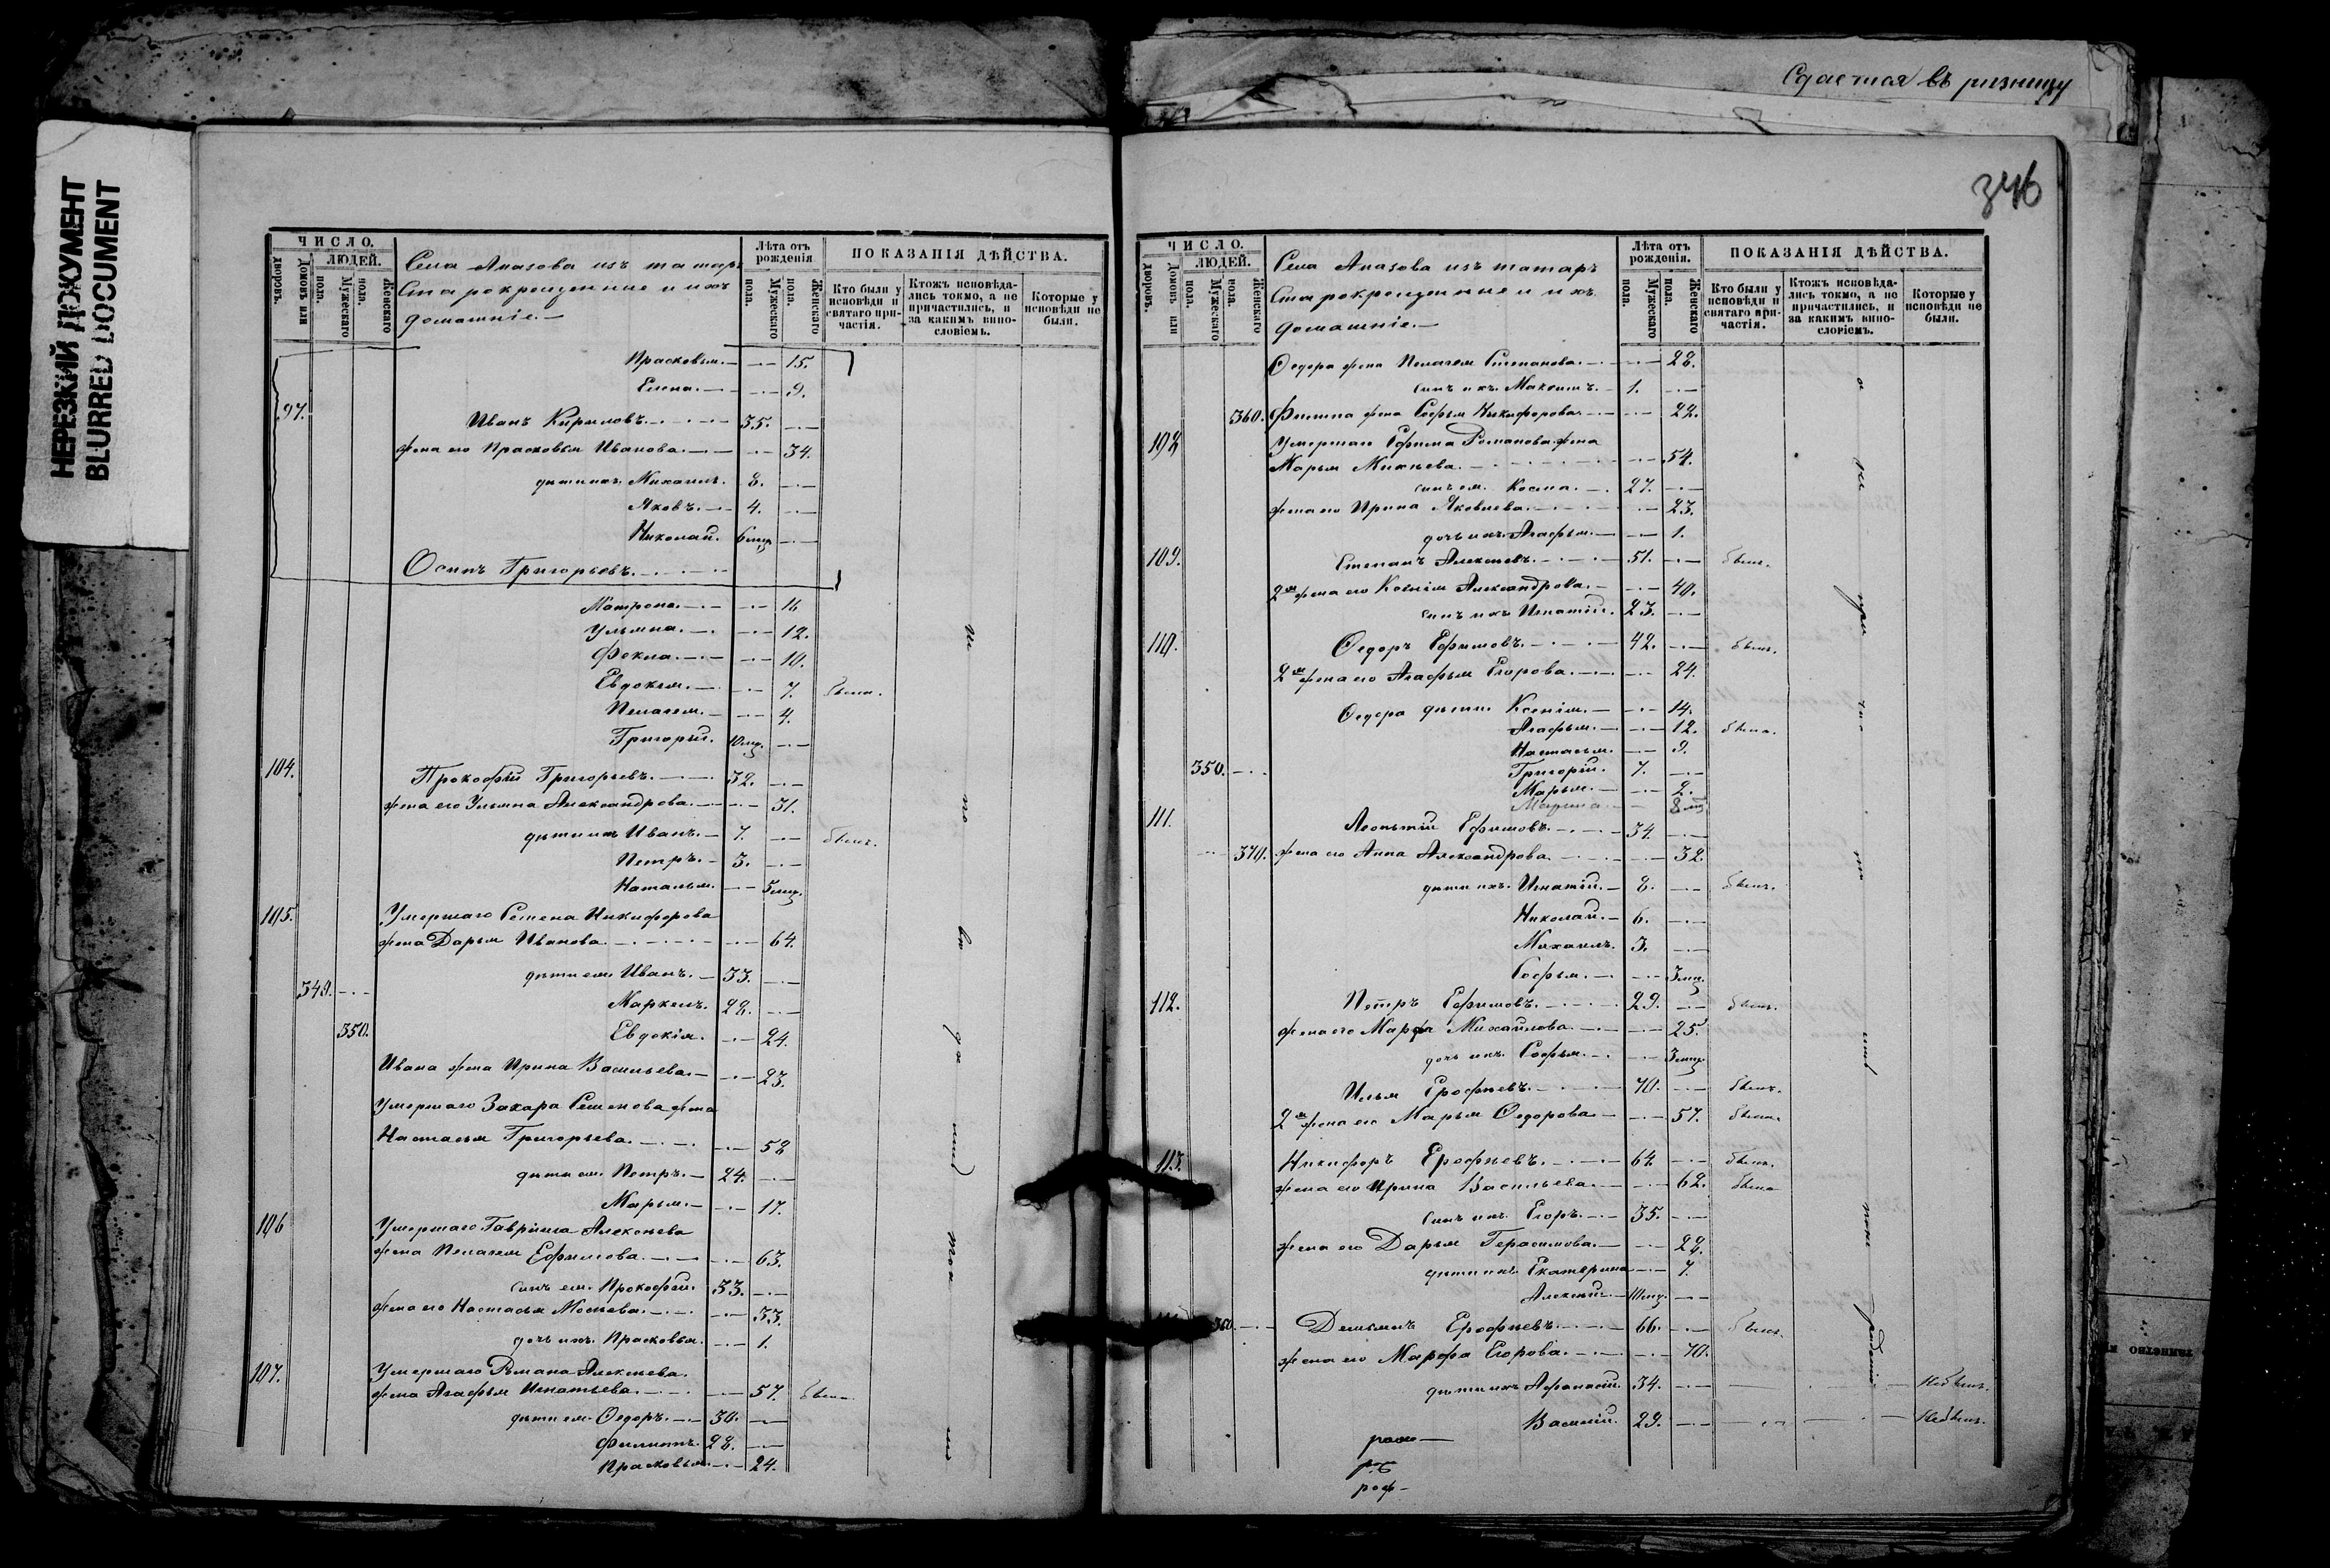 НЕРЕЗКИЙ ДОКУМЕНТ
BLURRED DOCUMENT
Сдается въ ризницу
346
ЧИСЛО.
дворовъ.
Домовъ или
ЛЮДЕЙ.
Мужескаго пола.
Женскаго пола.
Села Апазова изъ татаръ
Старокрещенные и ихъ
домашніе.—
Лѣта отъ рожденія
Мужескаго пола.
Женскаго пола.
ПОКАЗАНІЯ ДѢЙСТВА.
Кто были у исповѣди и святаго причастія.
Ктожъ исповѣдались токмо, а не причастились, и за какимъ винословіемъ.
Которые у исповѣди не были.
Прасковья. 15.
Елена. 9.
97. Иванъ Кириловъ. 35.
жена его Прасковья Иванова. 34.
дѣти ихъ Михаилъ. 8.
Яковъ. 4.
Николай. 6 мѣц
Осипъ Григорьевъ.
Матрона. 16
Ульяна. 12.
Фекла. 10.
Евдокья. 7. была.
Пелагея. 4.
Григорій. 10 мц.
104. Прокофій Григорьевъ. 32.
жена его Ульяна Александрова. 31.
дѣти ихъ Иванъ. 7. былъ.
Петръ. 3.
Наталья. 5 мц.
105. Умершаго Семена Никифорова
жена Дарья Иванова. 64.
дѣти ея. Иванъ. 33.
349. Маркелъ. 28.
350. Евдокія. 24.
Ивана жена Ирина Васильева. 23.
Умершаго Захара Семенова жена
Настасья Григорьева. 58
дѣти ея. Петръ. 24.
Марья. 17.
106 Умершаго Гавріила Алексѣева
жена Пелагея Ефимова. 63.
сынъ ея. Прокофій. 33.
жена его Настасья Мосѣева. 33.
дочь ихъ Прасковья. 1.
107. Умершаго Романа Алексѣева.
жена Агафья Игнатьева. 57. была.
дѣти ея. Ѳедоръ. 30.
Филиппъ. 28.
Прасковья. 24.
ЧИСЛО.
дворовъ.
Домовъ или
ЛЮДЕЙ.
Мужескаго пола.
Женскаго пола.
Села Апазова изъ татаръ
Старокрещенные и ихъ
домашніе.—
Лѣта отъ рожденія.
Мужескаго пола.
Женскаго пола.
ПОКАЗАНІЯ ДѢЙСТВА.
Кто были у исповѣди и святаго причастія.
Ктожъ исповѣдались токмо, а не причастились, и за какимъ винословіемъ.
Которые у исповѣди не были.
Ѳедора жена Пелагея Степанова. 28.
сынъ ихъ. Максимъ. 1.
360. Филиппа жена Софья Никифорова. 22.
108 Умершаго Ефима Романова жена
Марья Михѣева. 54.
сынъ ея. Косма. 27.
жена его Ирина Яковлева. 23.
дочь ихъ Агафья. 1.
109. Степанъ Алексѣевъ. 51. былъ.
2я жена его Ксенія Александрова. 40.
сынъ ихъ Игнатій. 23.
110. Ѳедоръ Ефимовъ. 42. былъ.
2я жена его Агафья Егорова. 24.
Ѳедора дѣти. Ксенія. 14.
Агафья. 12. была.
Настасья. 9.
350. Григорій. 7.
Марья. 2.
Марина. 8 мц
111. Леонтій Ефимовъ. 34.
370. жена его Анна Александрова. 32.
дѣти ихъ. Игнатій. 8. былъ.
Николай. 6.
Михаилъ. 3.
Софья. 3 мц.
112. Петръ Ефимовъ. 29. былъ.
жена его Марфа Михайлова. 25.
дочь ихъ. Софья. 3 мц.
Илья Ерофѣевъ. 70. былъ.
2я жена его Марья Ѳедорова. 57. была.
113. Никифоръ Ерофѣевъ. 64 былъ.
жена его Ирина Васильева. 62. была
сынъ ихъ Егоръ. 35.
жена его Дарья Герасимова. 28.
дѣти ихъ Екатерина 7.
Алексѣй. 10 мц.
360. Демьянъ Ерофѣевъ. 66. былъ.
жена его Марфа Егорова. 70.
дѣти ихъ Афанасій. 34. Небылъ.
Василій. 29. Небылъ.